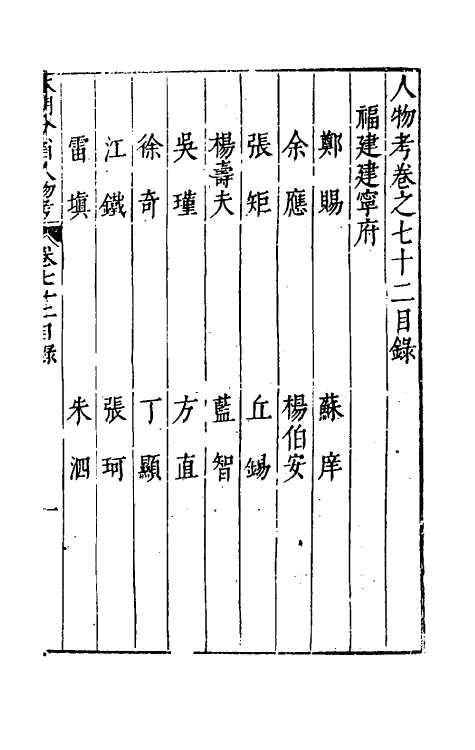 人物考卷之七十二目錄
福建建寧府
鄭賜 蘇庠
余應 楊伯安
張矩 丘錫
楊壽夫 藍智
吳瓘 方直
徐奇 丁顯
江鐵 張珂
雷塡 朱泗
本朝分省人物考 卷七十二目錄 一